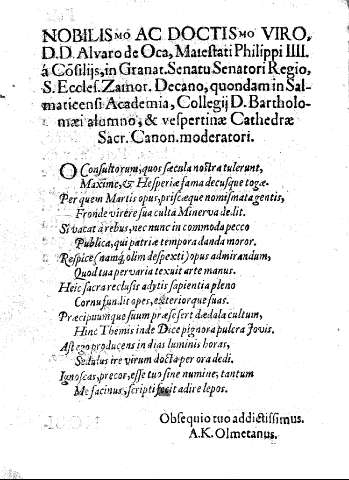 NOBILISMO AC DOCTISMO VIRO,
D.D. Alvaro de Oca, Maiestati Philippi IIII.
á Cõsilijs, in Granat. Senatu Senatori Regio,
S. Eccles. Zamor. Decano, quondam in Sal-
maticensi Academia, Collegij D. Bartholo-
mæi alumno, & vespertinæ Cathedræ
Sacr. Canon. moderatori.
O Consultorum, quos sæcula nostra tulerunt,
Maxime, & Hesperiæ fama decusque togæ.
Per quem Martis opus, priscæque nomismata gentis,
Fronde virere sua culta Minerva dedit.
Si vacat à rebus, nec nunc in commoda pecco
Publica, qui patriæ tempora danda moror.
Respice (namq; olim despexti) opus admirandum,
Quod tua per varia texuit arte manus.
Heic sacra reclusis adytis sapientia pleno
Cornu fundit opes, exteriorque suas.
Præcipuumque suum præsefert dædala cultum,
Hinc Themis inde Dice pignora pulcra Jovis.
Ast ego producens in dias luminis horas,
Sedulus ire virum docta per ora dedi.
Ignoscas, precor, esse tuo sine numine, tantum
Me facinus, scripti fecit adire lepos.
Obsequio tuo addictissimus.
A.K. Olmetanus.